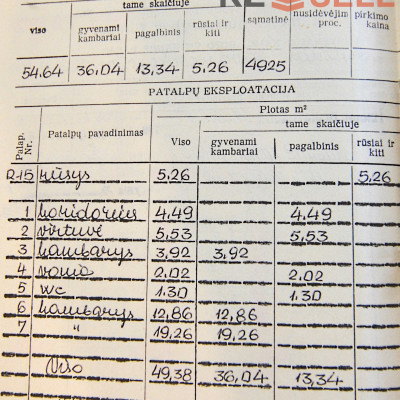 RESELL
tame skaičiuje
viso gyvenami kambariai pagalbinis rūsiai ir kiti sąmatinė nusidėvėjim proc. pirkimo kaina
54.64 36,04 13,34 5,26 4925
PATALPŲ EKSPLOATACIJA
Plotas m²
tame skaičiuje
Patalp. Nr. Patalpų pavadinimas Viso gyvenami kambariai pagalbinis rūsiai ir kiti
R-15 rūsys 5.26 5,26
1 koridorius 4.49 4.49
2 virtuvė 5,53 5,53
3 kambarys 3,92 3,92
4 vonia 2.02 2.02
5 WC 1.30 1.30
6 kambarys 12,86 12,86
7 " 19,26 19,26
Viso 49,38 36,04 13,34